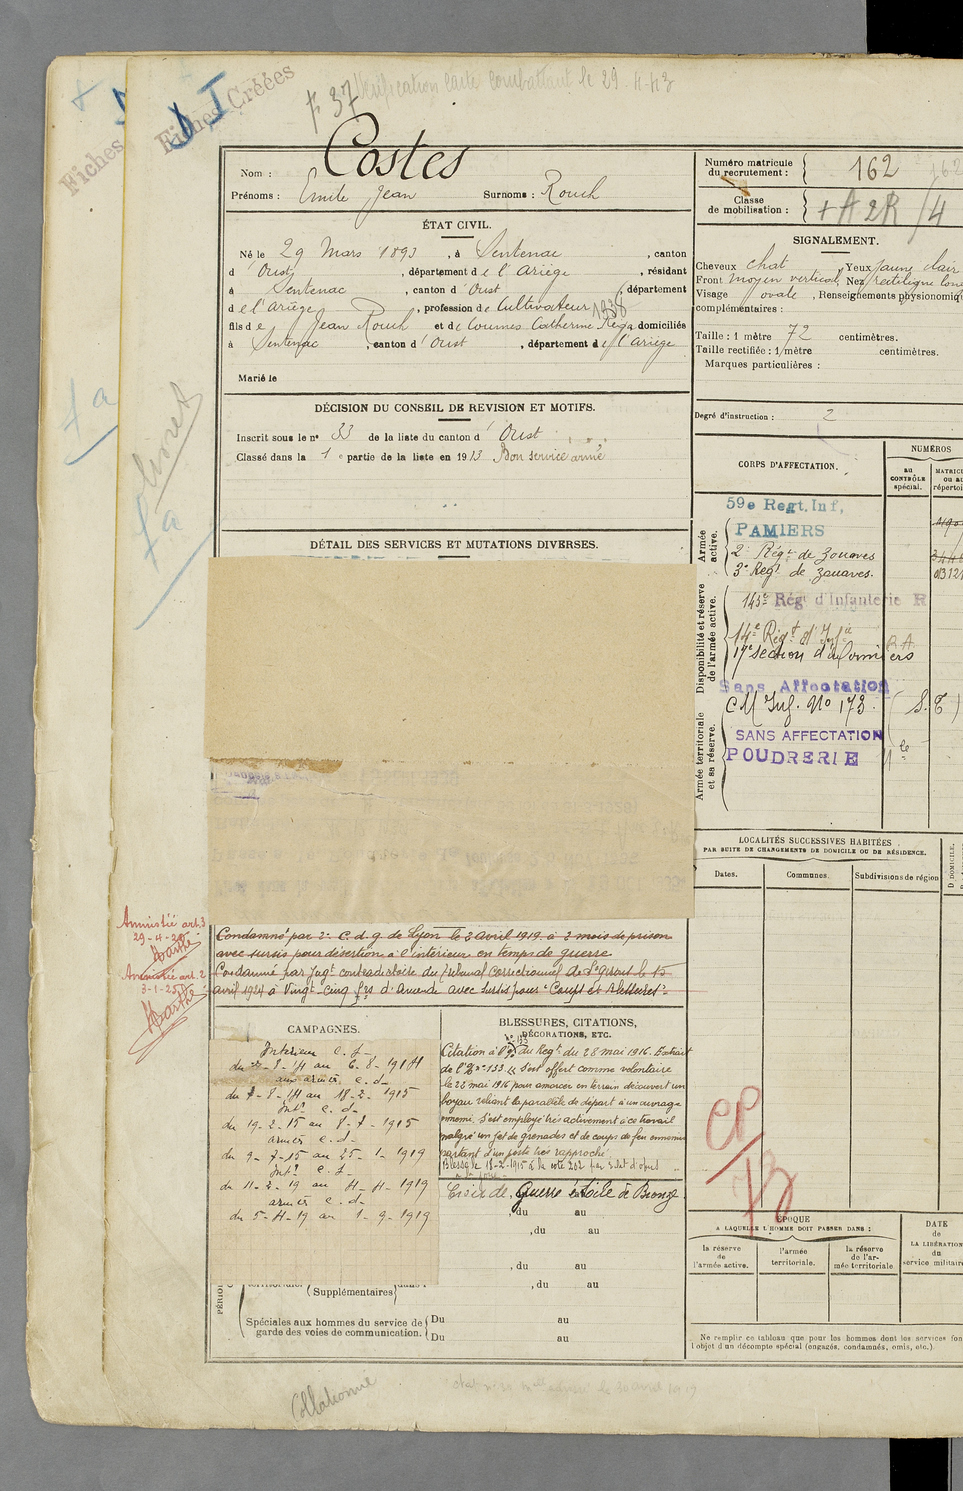 Fiches
Fiches Créées
f. 37
Vérification carte combattant le 29-4-43
Nom : Costes
Prénoms : Emile Jean Surnoms : Rouch
ÉTAT CIVIL.
Né le 29 Mars 1893, à Sentenac, canton
d'Oust, département de l'Ariège, résidant
à Sentenac, canton d'Oust, département
de l'ariège, profession de Cultivateur 1938
fils de Jean Rouch et de Coumes Catherine domiciliés
à Sentenac, canton d'Oust, département de l'ariège
Marié le
DÉCISION DU CONSEIL DE REVISION ET MOTIFS.
Inscrit sous le no 33 de la liste du canton d'Oust
Classé dans la 1e partie de la liste en 1913 Bon service armé
DÉTAIL DES SERVICES ET MUTATIONS DIVERSES.
Condamné par 2e C. d. g. de Lyon le 2 avril 1919 à 2 mois de prison
avec sursis pour désertion à l'intérieur en temps de guerre
Condamné par Jugt contradictoire du tribunal correctionnel de St Girons le 15
avril 1924 à Vingt-cinq frs d'Amende avec sursis pour "Coups et Blessures".
Amnistié art. 3
29-4-20
Amnistié art. 2
3-1-25
CAMPAGNES.
Intérieur C. S-
aux armées C. d-
du 7-8-14 au 18-2-1915
Intr C. d-
du 19-2-15 au 8-7-1915
armées C. d-
du 9-7-15 au 25-1-1919
Intr C. S-
du 11-2-19 au 4-4-1919
armées C. d-
du 5-4-19 au 1-9-1919
BLESSURES, CITATIONS,
DÉCORATIONS, ETC.
Citation à l'O. du Regt du 28 mai 1916. Extrait
de l'O. no 133 "S'est offert comme volontaire
le 22 mai 1916 pour amorcer en terrain découvert un
boyau reliant la parallèle de départ à un ouvrage
ennemi. S'est employé très activement à ce travail
malgré un jet de grenades et de coups de feu ennemis
partant d'un poste très rapproché.
Blessé le 18-2-1915 à la cote 202 par éclat d'obus
Croix de Guerre étoile de Bronze
, du au
, du au
, du au
, du au
Supplémentaires
Spéciales aux hommes du service de
garde des voies de communication.
Du au
Du au
Collationné
Numéro matricule
du recrutement : 162
Classe
de mobilisation : + A 2R /4
SIGNALEMENT.
Cheveux chat Yeux jaune clair
Front moyen vertical, Nez rectiligne
Visage ovale, Renseignements physionomiq
complémentaires :
Taille : 1 mètre 72 centimètres.
Taille rectifiée : 1/mètre centimètres.
Marques particulières :
Degré d'instruction : 2
CORPS D'AFFECTATION.
NUMÉROS
au
CONTRÔLE
spécial.
MATRICU
ou au
répertoi
Armée
active.
59e Regt. Inf,
PAMIERS
2e Régt de Zouaves
3e Regt de zouaves.
Disponibilité et réserve
de l'armée active.
143e Régt d'Infanterie R
14e Régt d'Infie
17e section d'infirmiers
Sans Affectation
Armée territoriale
et sa réserve.
CM Inf. No 173. (S. T)
SANS AFFECTATION
POUDRERIE
LOCALITÉS SUCCESSIVES HABITÉES
PAR SUITE DE CHANGEMENTS DE DOMICILE OU DE RÉSIDENCE.
Dates.
Communes.
Subdivisions de région
D DOMICILE.
ÉPOQUE
A LAQUELLE L'HOMME DOIT PASSER DANS :
la réserve
de
l'armée active.
l'armée
territoriale.
la réserve
de l'ar-
mée territoriale.
DATE
de
LA LIBÉRATION
du
service militaire
Ne remplir ce tableau que pour les hommes dont les services fon
l'objet d'un décompte spécial (engagés, condamnés, omis, etc.).